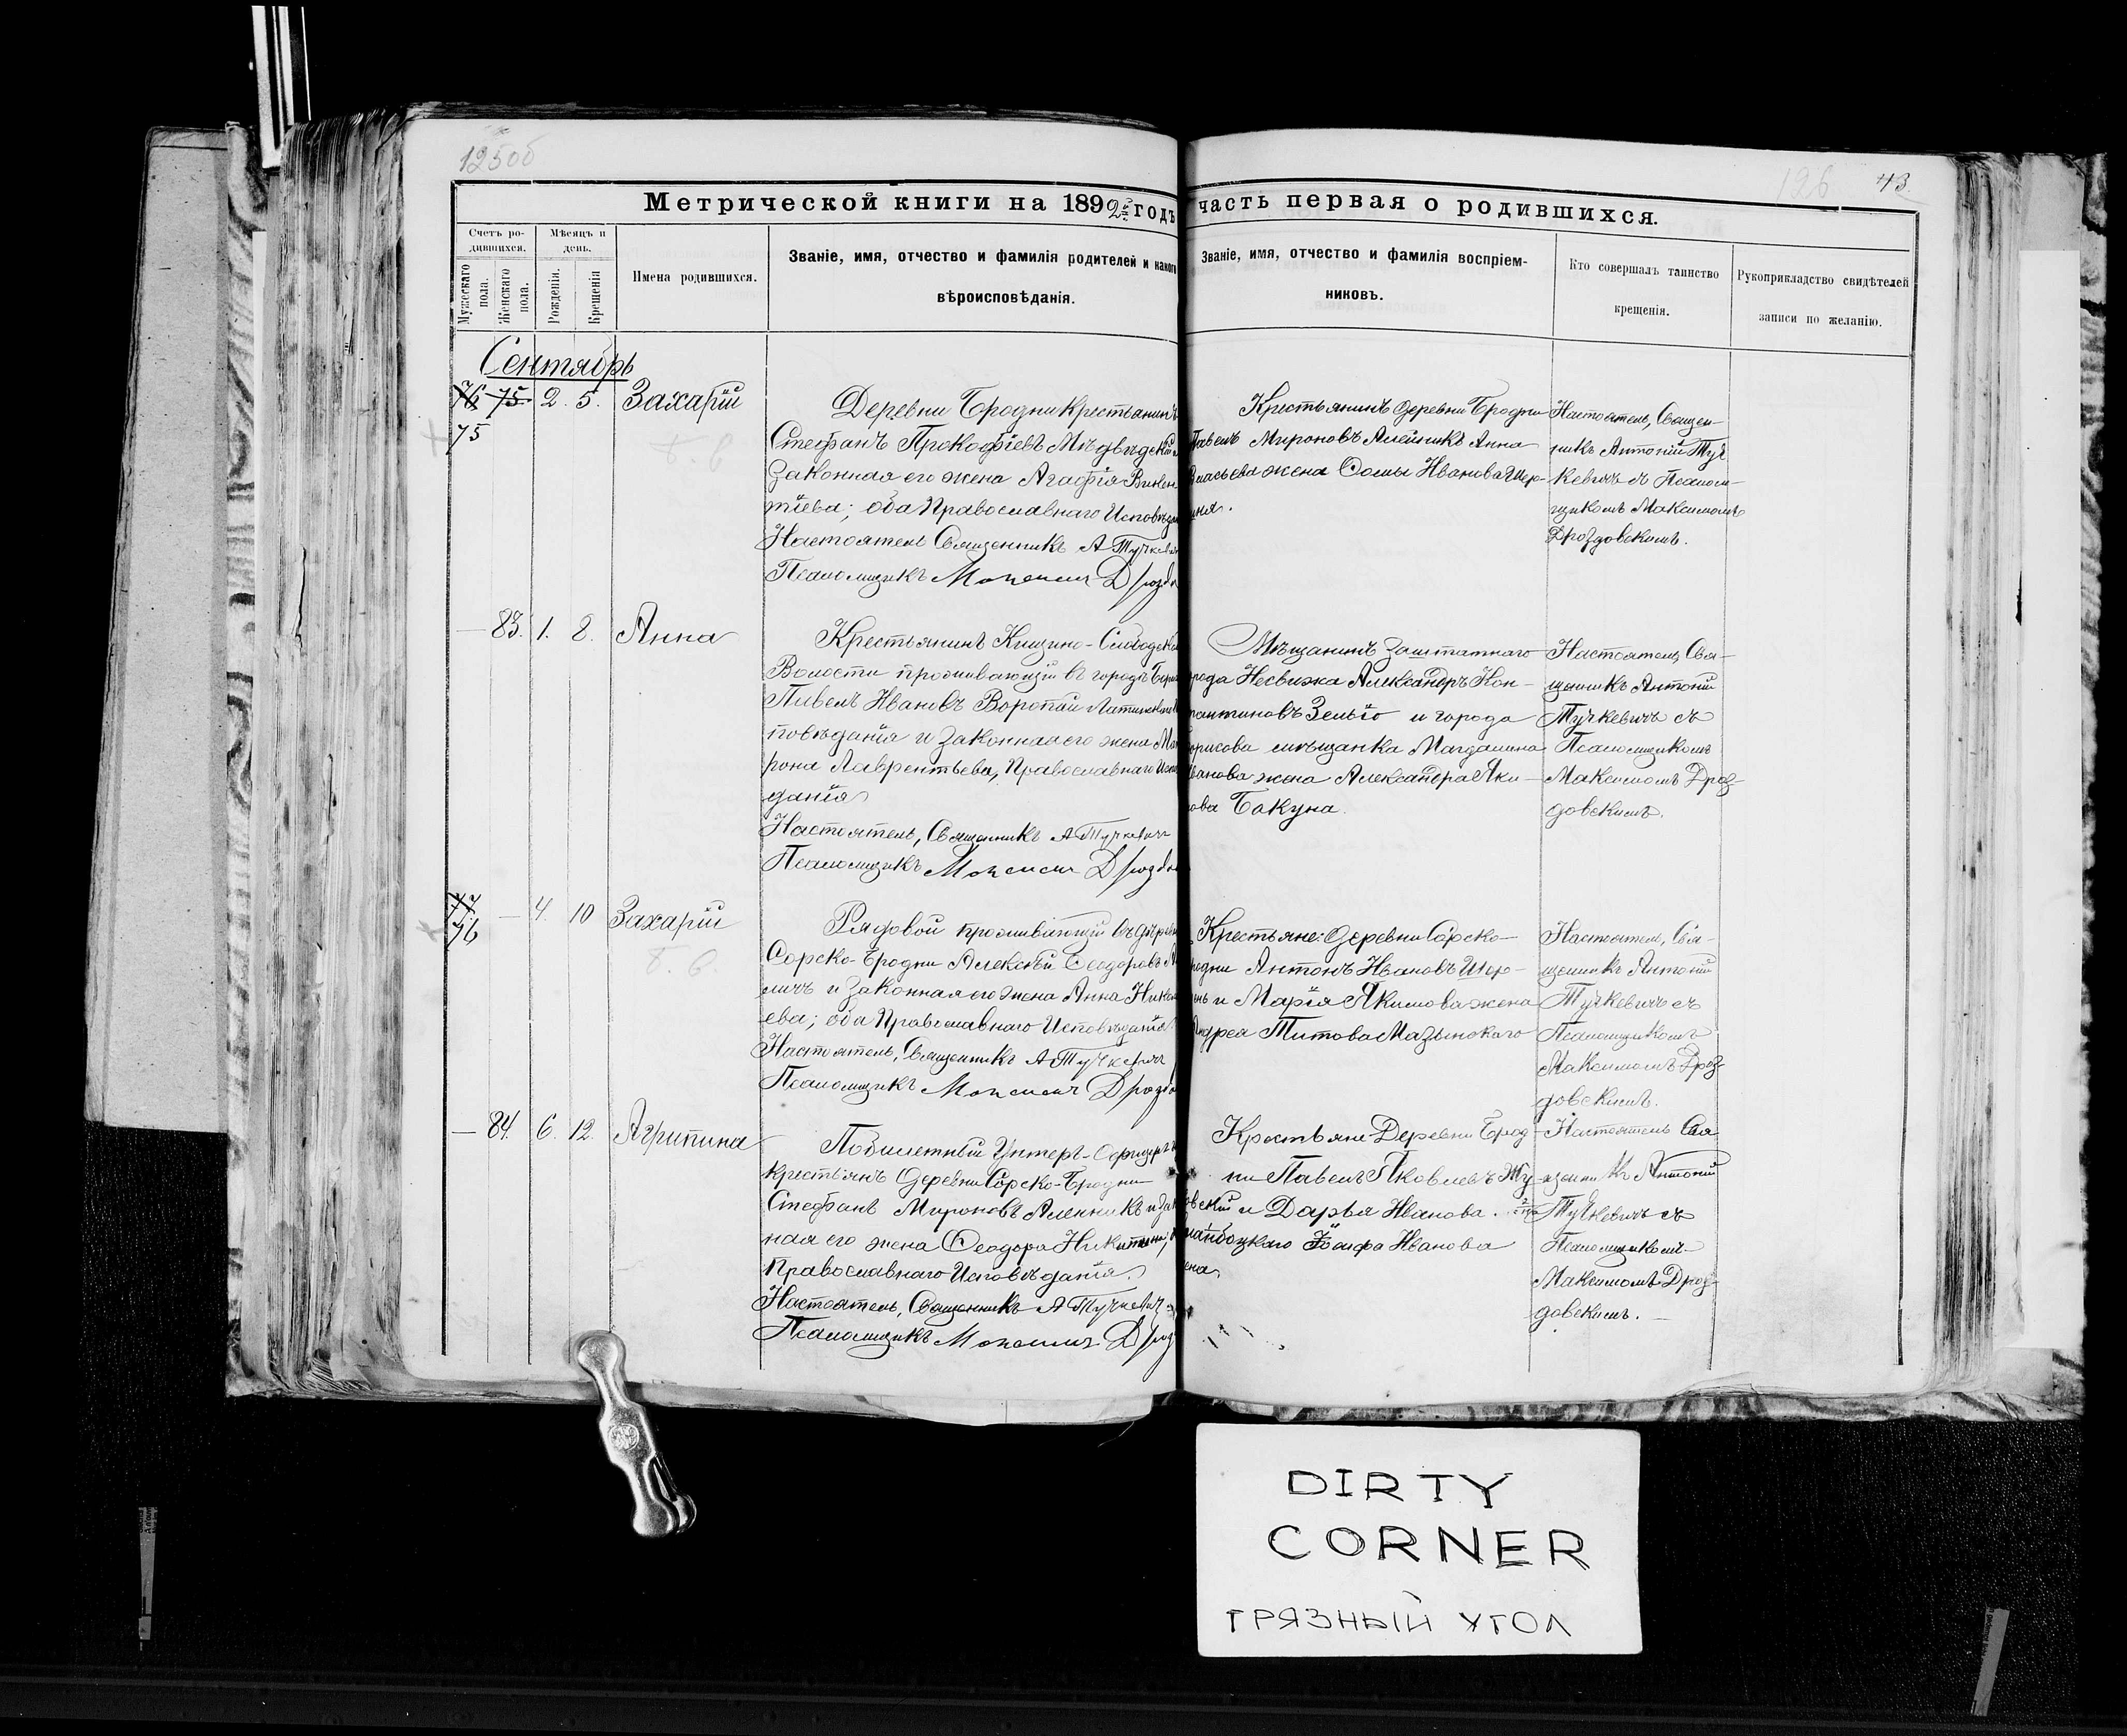 125об
126 43.
Метрической книги на 1892й годъ часть первая о родившихся.
Счетъ родившихся.
Мужескаго пола.
Женскаго пола.
Мѣсяцъ и день.
Рожденія.
Крещенія
Имена родившихся.
Званіе, имя, отчество и фамилія родителей и какого
вѣроисповѣданія.
Званіе, имя, отчество и фамилія воспріем-
никовъ.
Кто совершалъ таинство
крещенія.
Рукоприкладство свидѣтелей
записи по желанію.
Сентябрь
76 75 2. 5. Захарій
75
Деревни Бродни крестьянинъ
Стефанъ Прокофіевъ
законная его жена Агафія Викен
тіева; оба Православнаго
Настоятель Священникъ А Тучкевич
Псаломщикъ Максим Дрозdо
Крестьянинъ деревни Бродни
Павелъ Мироновъ Алейникъ Анна
жена Фомы Иванова Шер-
шня.
Настоятель, Священ-
никъ Антоній Туч
кевичъ съ Псалом-
щикомъ Максимомъ
Дроздовскимъ.
— 83. 1. 8. Анна
Крестьянинъ
Волости проживающій въ городѣ
Павелъ Ивановъ Воропай
повѣданія и законная его жена
рона Лаврентьева, Православнаго
данія
Настоятель, Священникъ А Тучкевич
Псаломщикъ Максим Дрозdо
Мѣщанинъ заштатнаго
города Несвижа Александръ Кон-
стантиновъ и города
Борисова мѣщанка Магдалина
Иванова жена Александра Яки-
мова Бакуна.
Настоятель, Свя-
щенникъ Антоній
Тучкевичъ съ
Псаломщикомъ
Максимомъ Дроз-
довскимъ.
77 — 4. 10 Захарій
76
Рядовой проживающій въ деревни
Сорско-Бродни Алексѣй Ѳеодоровъ
личъ и законная его жена Анна
ева; оба Православнаго Исповѣданія
Настоятель, Священникъ А Тучкевич
Псаломщикъ Максим Дрозdо
Крестьяне: деревни Сорско-
Бродни Антонъ Ивановъ Шер-
шень и Марія Якимова жена
Андрея Титова Мазынскаго
Настоятель, Свя-
щенникъ Антоній
Тучкевичъ съ
Псаломщикомъ
Максимомъ Дроз-
довскимъ.
— 84. 6. 12. Агрипина
Побилетный Унтеръ-Офицеръ
крестьянъ деревни Сорско-Бродни
Стефанъ Мироновъ
ная его жена Ѳеодора
Православнаго Исповѣданія.
Настоятель, Священникъ А Тучкевич
Псаломщикъ Максим Дрозd
Крестьяне Деревни Брод-
ни Павелъ Яковлевъ Жу
и Дарья Иванова
Іосифа Иванова
жена
Настоятель Свя
щенникъ Антоній
Тучкевичъ съ
Псаломщикомъ
Максимомъ Дроз-
довскимъ.
DIRTY
CORNER
ГРЯЗНЫЙ УГОЛ